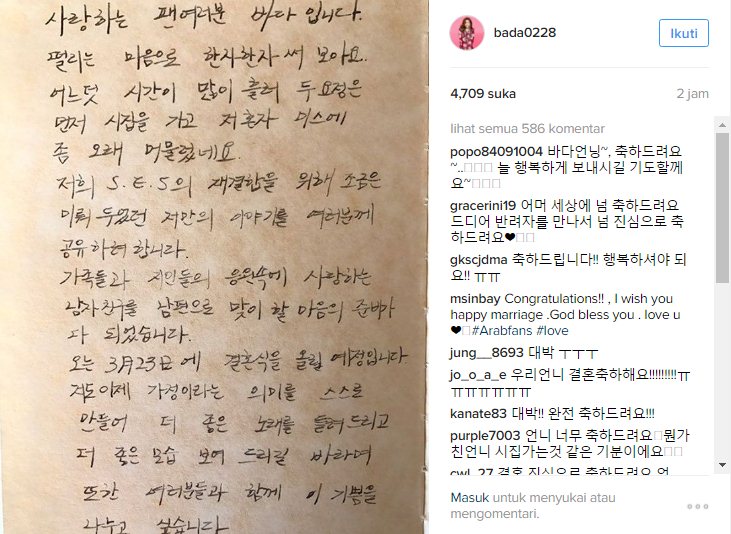 사랑하는 팬여러분 바다 입니다.
떨리는 마음으로 한자한자 써 보아요.
어느덧 시간이 많이 흘러 두 요정은
먼저 시집을 가고 저 혼자 미스에
좀 오래 머물렀네요.
저희 S.E.S의 재결합을 위해 조금은
미뤄 두었던 저만의 이야기를 여러분께
공유하려 합니다.
가족들과 지인들의 응원속에 사랑하는
남자친구를 남편으로 맞이 할 마음의 준비가
다 되었습니다.
오는 3月23日에 결혼식을 올릴 예정입니다.
저도 이제 가정이라는 의미를 스스로
만들어 더 좋은 노래를 들려드리고
더 좋은 모습 보여 드리길 바라며
또한 여러분들과 함께 이 기쁨을
나누고 싶습니다.
bada0228
Ikuti
4,709 suka
2 jam
lihat semua 586 komentar
popo84091004 바다언닝~, 축하드려요
~.. 늘 행복하게 보내시길 기도할께
요~
gracerini19 어머 세상에 넘 축하드려요
드디어 반려자를 만나서 넘 진심으로 축
하드려요❤
gkscjdma 축하드립니다!! 행복하셔야 되
요!! ㅠㅠ
msinbay Congratulations!! , I wish you
happy marriage .God bless you . love u
❤ #Arabfans #love
jung__8693 대박 ㅜㅜㅜ
jo_o_a_e 우리언니 결혼축해요!!!!!!!!!ㅠ
ㅠㅠㅠㅠㅠㅠ
kanate83 대박!! 완전 축하드려요!!!
purple7003 언니 너무 축하드려요 뭔가
친언니 시집가는것 같은 기분이에요
cwl_27 결혼 진심으로 축하드려요 언
Masuk untuk menyukai atau
mengomentari.